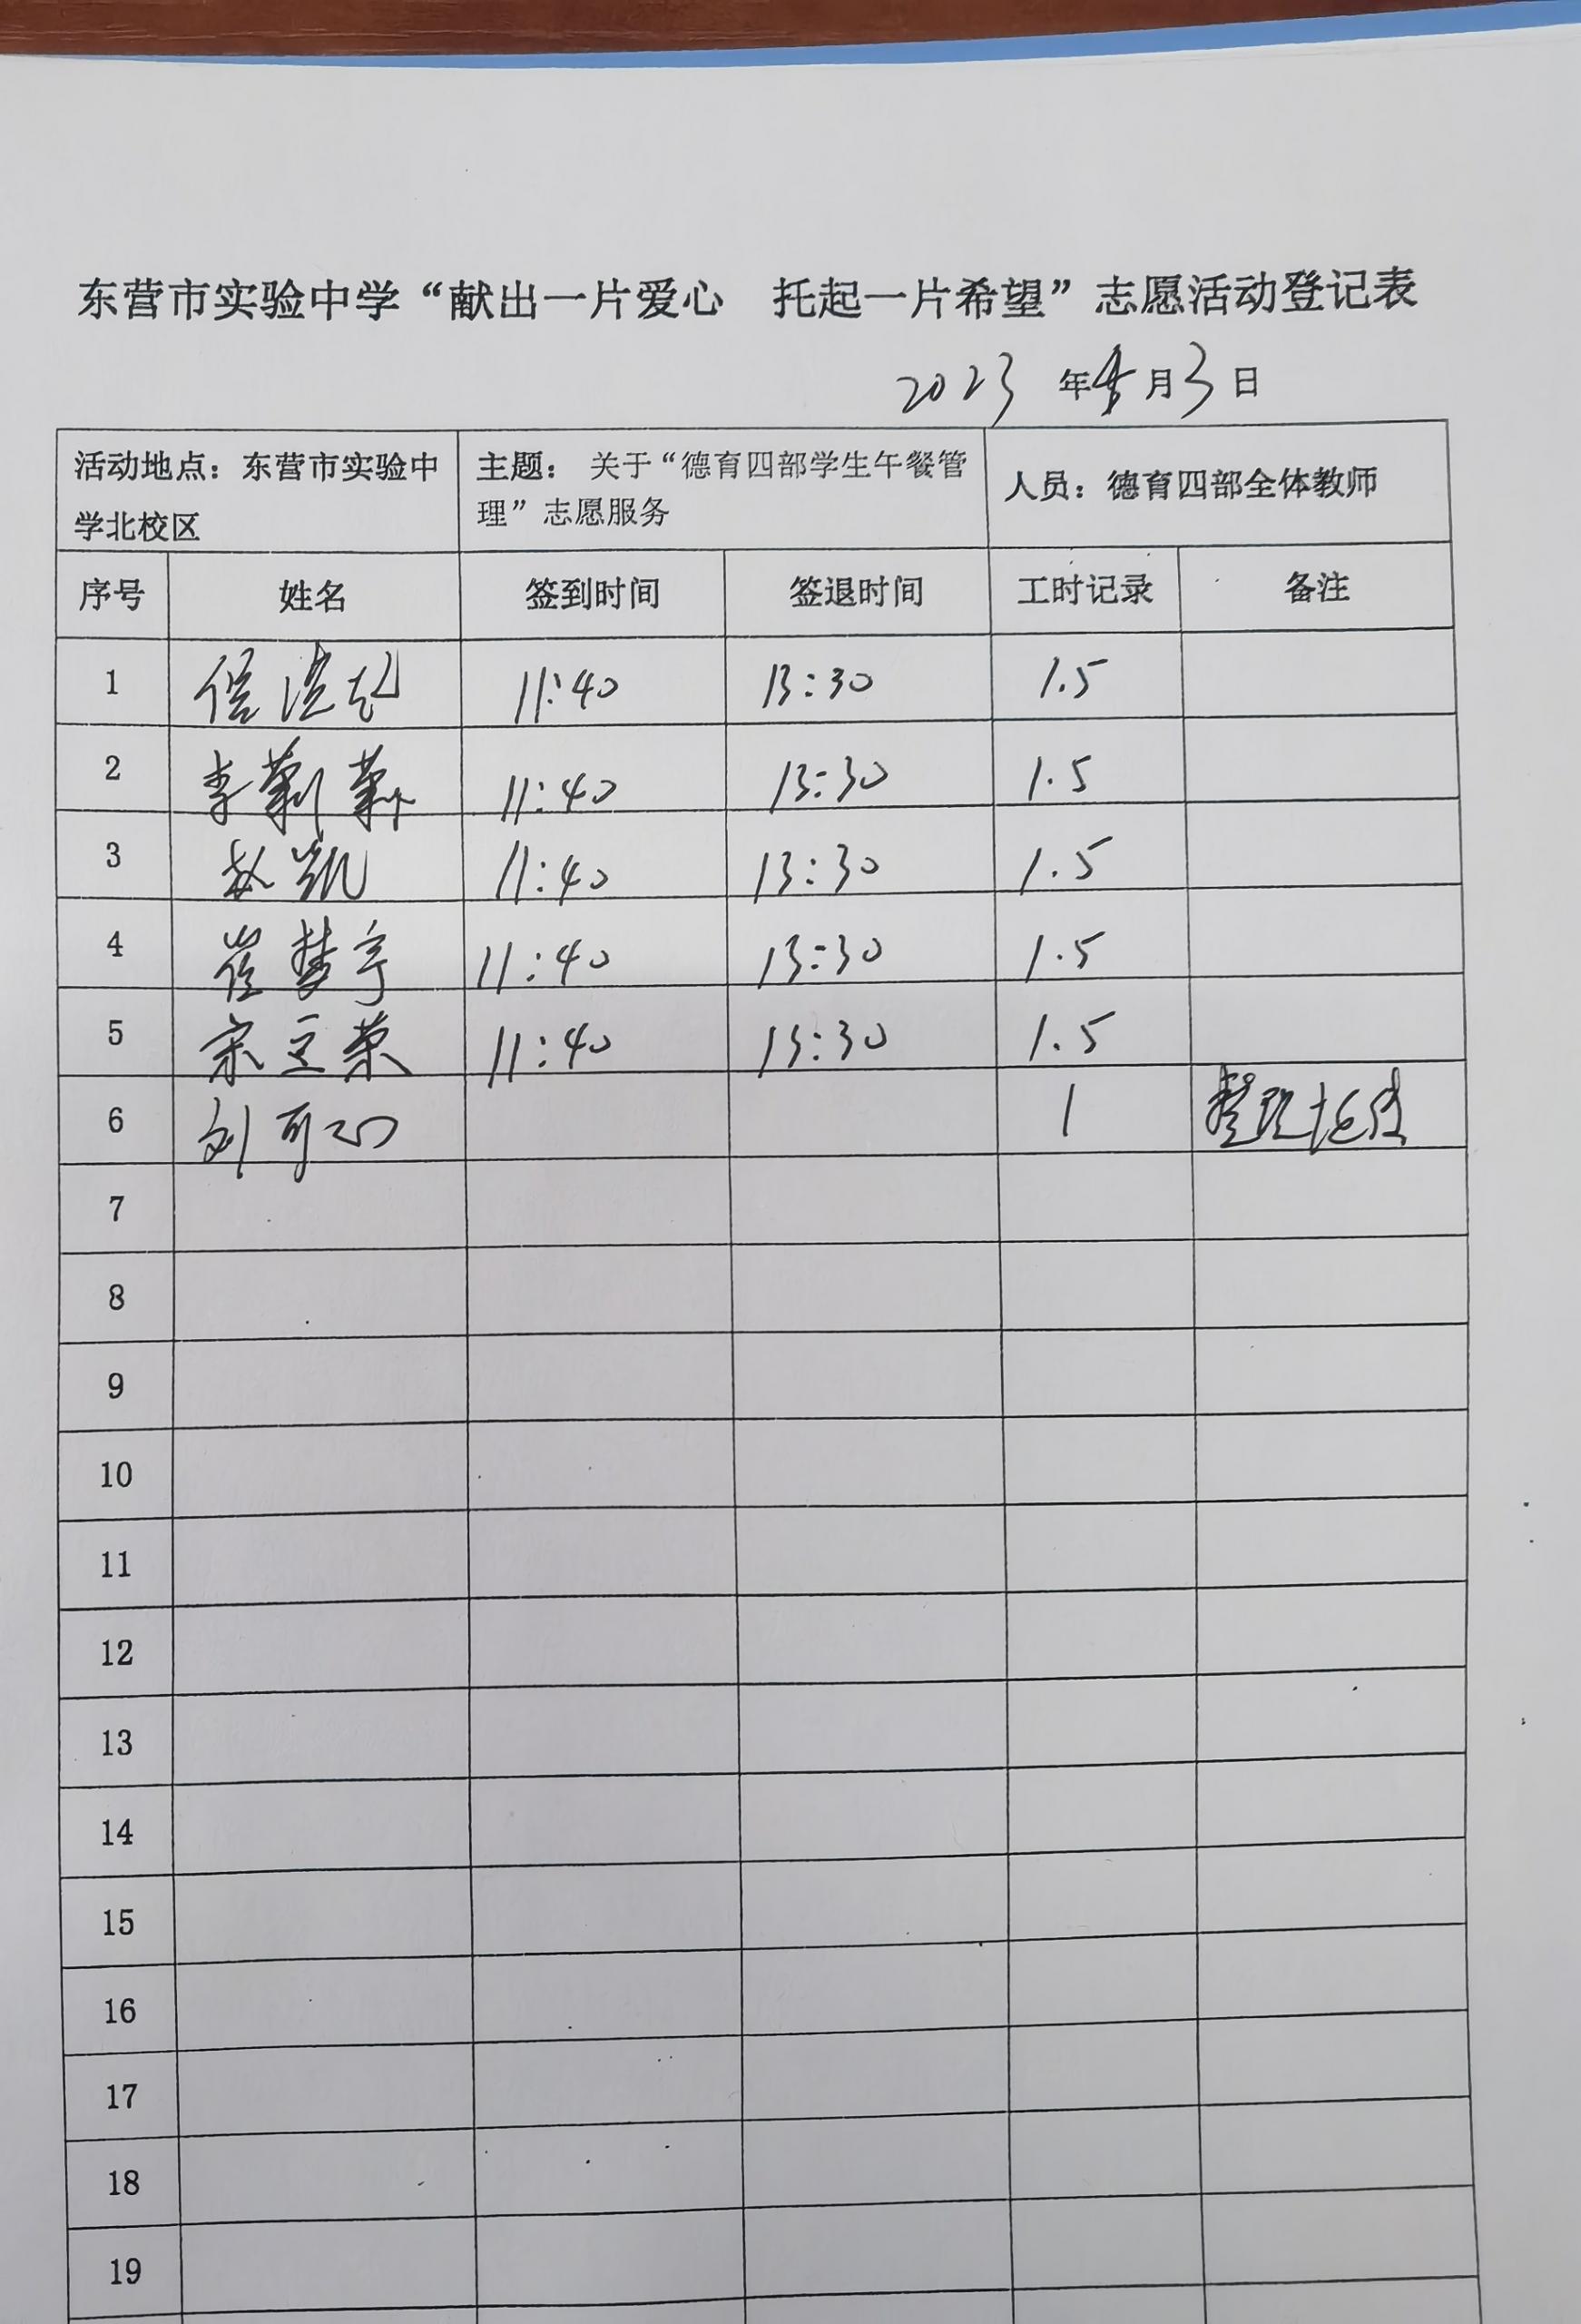 东营市实验中学“献出一片爱心 托起一片希望”志愿活动登记表
2023 年 月 3 日
活动地点：东营市实验中学北校区 主题： 关于“德育四部学生午餐管理”志愿服务 人员：德育四部全体教师
序号 姓名 签到时间 签退时间 工时记录 备注
1 11:40 13:30 1.5
2 李 11:40 13:30 1.5
3 赵凯 11:40 13:30 1.5
4 崔梦宇 11:40 13:30 1.5
5 宋立荣 11:40 13:30 1.5
6 刘可心 1 整理
7
8
9
10
11
12
13
14
15
16
17
18
19